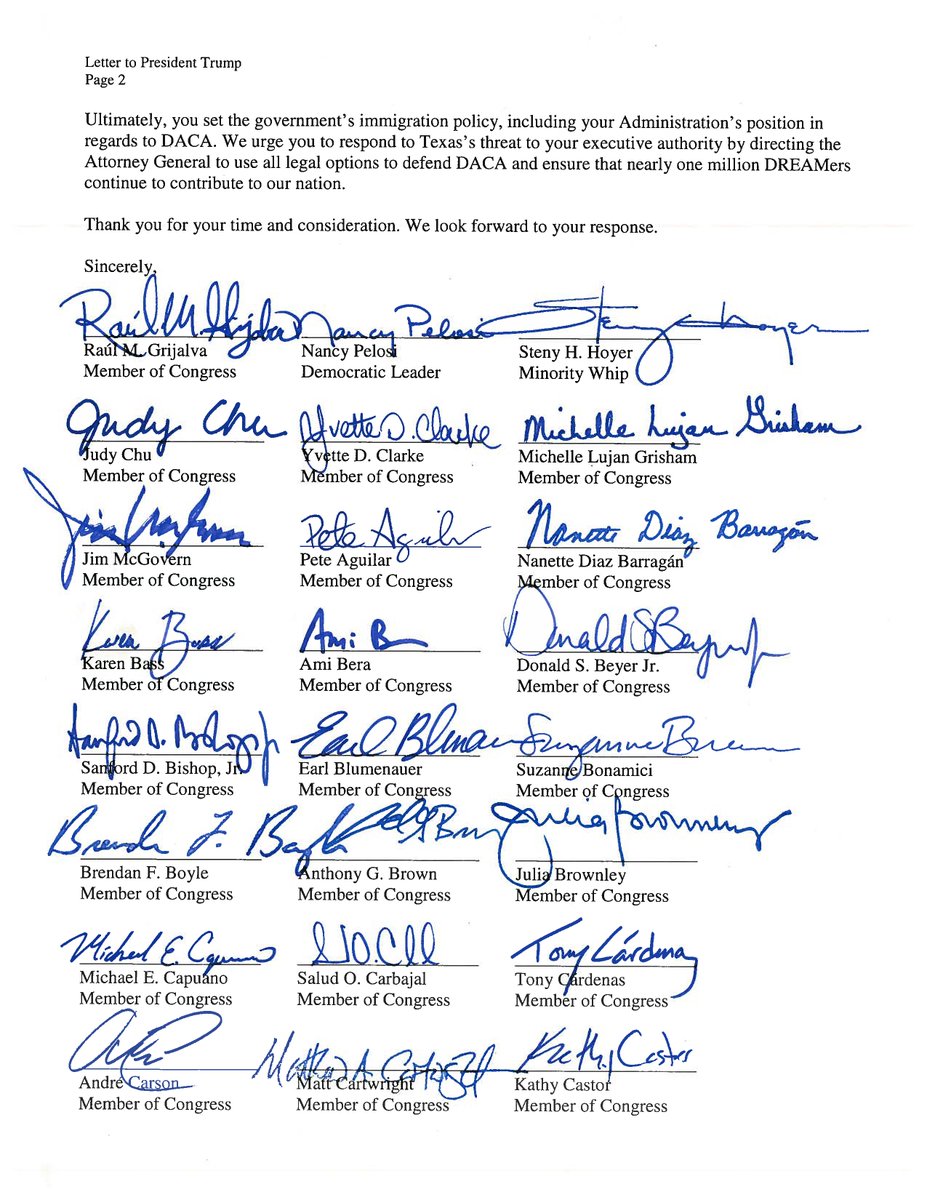 Letter to President Trump
Page 2
Ultimately, you set the government's immigration policy, including your Administration's position in
regards to DACA. We urge you to respond to Texas's threat to your executive authority by directing the
Attorney General to use all legal options to defend DACA and ensure that nearly one million DREAMers
continue to contribute to our nation.
Thank you for your time and consideration. We look forward to your response.
Sincerely,
Raúl M. Grijalva Nancy Pelosi Steny Hoyer
Raúl M. Grijalva Nancy Pelosi Steny H. Hoyer
Member of Congress Democratic Leader Minority Whip
Judy Chu Yvette D. Clarke Michelle Lujan Grisham
Judy Chu Yvette D. Clarke Michelle Lujan Grisham
Member of Congress Member of Congress Member of Congress
Jim Pete Aguilar Nanette Diaz Barragán
Jim McGovern Pete Aguilar Nanette Diaz Barragán
Member of Congress Member of Congress Member of Congress
Karen Bass Ami B Donald S Beyer Jr
Karen Bass Ami Bera Donald S. Beyer Jr.
Member of Congress Member of Congress Member of Congress
Sanford D. Bishop Jr Earl Blumenauer Suzanne
Sanford D. Bishop, Jr. Earl Blumenauer Suzanne Bonamici
Member of Congress Member of Congress Member of Congress
Brendan F. Boyle Julia Brownley
Brendan F. Boyle Anthony G. Brown Julia Brownley
Member of Congress Member of Congress Member of Congress
Michael E. Capuano Tony Cárdenas
Michael E. Capuano Salud O. Carbajal Tony Cárdenas
Member of Congress Member of Congress Member of Congress
Matthew A. Cartwright Kathy Castor
André Carson Matt Cartwright Kathy Castor
Member of Congress Member of Congress Member of Congress